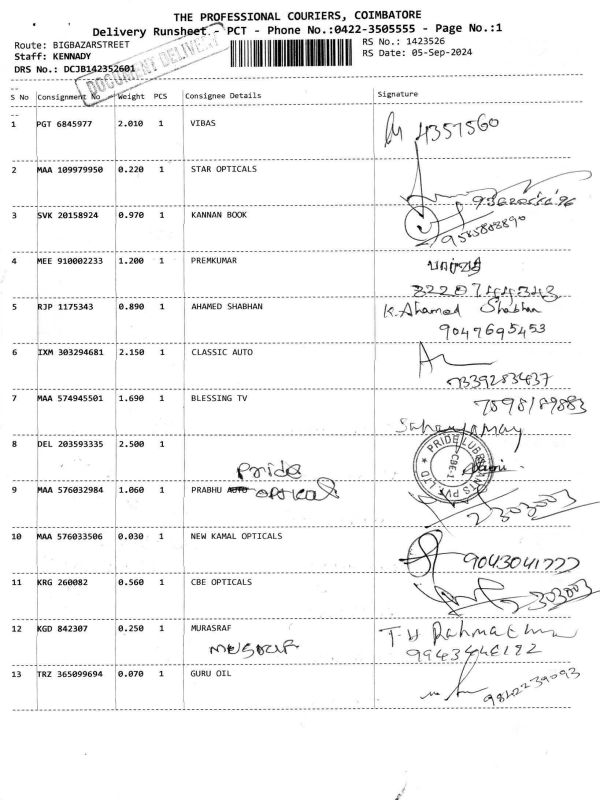 THE PROFESSIONAL COURIERS, COIMBATORE
Delivery Runsheet - PCT - Phone No.:0422-3505555 - Page No.:1
Route: BIGBAZARSTREET
RS No.: 1423526
Staff: KENNADY
RS Date: 05-Sep-2024
DRS No.: DCJB142352601
DOCUMENT DELIVERY
S No Consignment No Weight PCS Consignee Details Signature
1 PGT 6845977 2.010 1 VIBAS
4357560
2 MAA 109979950 0.220 1 STAR OPTICALS
3 SVK 20158924 0.970 1 KANNAN BOOK
9585888890
4 MEE 910002233 1.200 1 PREMKUMAR
5 RJP 1175343 0.890 1 AHAMED SHABHAN K. Ahamed Shabhan
9047695453
6 IXM 303294681 2.150 1 CLASSIC AUTO
7339283437
7 MAA 574945501 1.690 1 BLESSING TV 7598189883
8 DEL 203593335 2.500 1
PRIDE LUBRICANTS PVT. LTD
CBE-1
Pride
9 MAA 576032984 1.060 1 PRABHU AUTO optical
2303003
10 MAA 576033506 0.030 1 NEW KAMAL OPTICALS
9043041777
11 KRG 260082 0.560 1 CBE OPTICALS
2303003
12 KGD 842307 0.250 1 MURASRAF
9943446192
13 TRZ 365099694 0.070 1 GURU OIL
9842239093